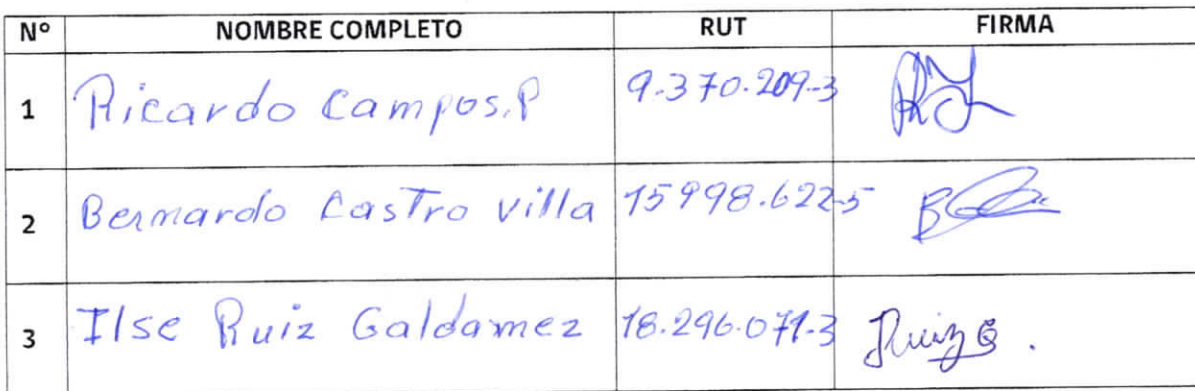 Nº NOMBRE COMPLETO RUT FIRMA
1 Ricardo Campos.P 9.370.209-3
2 Bernardo Castro Villa 15998.622-5
3 Ilse Ruiz Galdamez 18.296.071-3 Ruiz G.